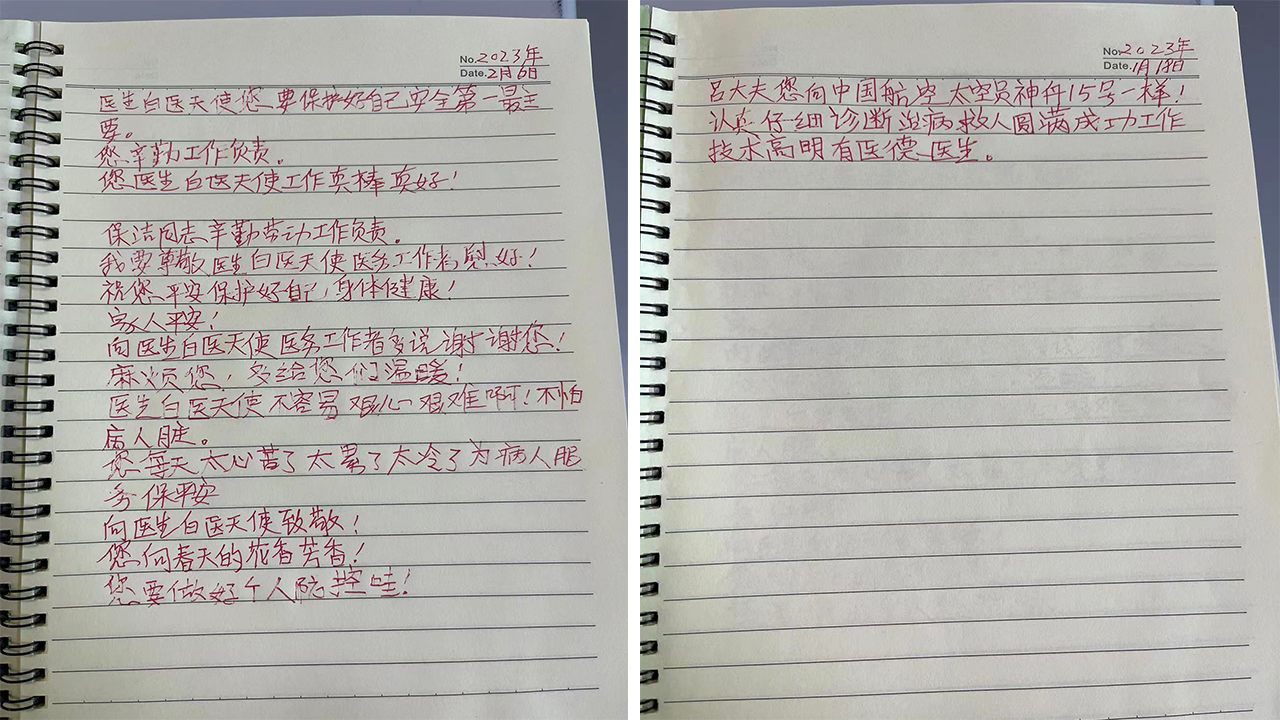 No. 2023年
Date. 2月6日
医生白医天使您要保护好自己安全第一最主
要。
您辛勤工作负责。
您医生白医天使工作真棒真好！
保洁同志辛勤劳动工作负责。
我要尊敬医生白医天使医务工作者 好！
祝您平安保护好自己，身体健康！
家人平安！
向医生白医天使医务工作者多说谢谢您！
麻烦您，多给您们温暖！
医生白医天使不容易 艰难啊！不怕
病人脏。
您每天太心苦了太累了太冷了为病人服
务保平安
向医生白医天使致敬！
您向春天的花香芳香！
您要做好个人防控哇！
No. 2023年
Date. 1月18日
吕大夫您向中国航空太空员神舟15号一样！
认真仔细诊断治病救人圆满成功工作
技术高明有医德医生。